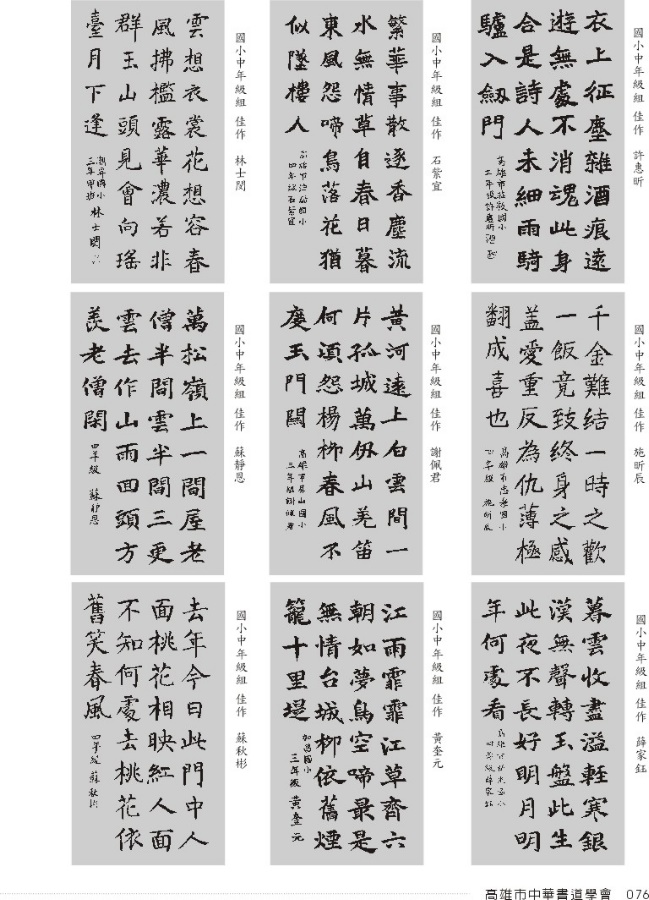 國小中年級組 佳作 許惠昕
衣上征塵雜酒痕遠
遊無處不消魂此身
合是詩人未細雨騎
驢入劍門
國小中年級組 佳作 石紫宜
繁華事散逐香塵流
水無情草自春日暮
東風怨啼鳥落花猶
似墜樓人
四年級石紫宜
國小中年級組 佳作 林士閔
雲想衣裳花想容春
風拂檻露華濃若非
群玉山頭見會向瑤
臺月下逢
三年甲班 林士閔
國小中年級組 佳作 施昕辰
千金難結一時之歡
一飯竟致終身之感
蓋愛重反為仇薄極
翻成喜也
高雄市忠孝國小
四年級 施昕辰
國小中年級組 佳作 謝佩君
黃河遠上白雲間一
片孤城萬仞山羌笛
何須怨楊柳春風不
度玉門關
國小中年級組 佳作 蘇靜恩
萬松嶺上一間屋老
僧半間雲半間三更
雲去作山雨回頭方
羨老僧閑
四年級 蘇靜恩
國小中年級組 佳作 薛家鈺
暮雲收盡溢輕寒銀
漢無聲轉玉盤此生
此夜不長好明月明
年何處看
四年級薛家鈺
國小中年級組 佳作 黃奎元
江雨霏霏江草齊六
朝如夢鳥空啼最是
無情台城柳依舊煙
籠十里堤
三年級 黃奎元
國小中年級組 佳作 蘇秋彬
去年今日此門中人
面桃花相映紅人面
不知何處去桃花依
舊笑春風
四年級 蘇秋彬
高雄市中華書道學會 076